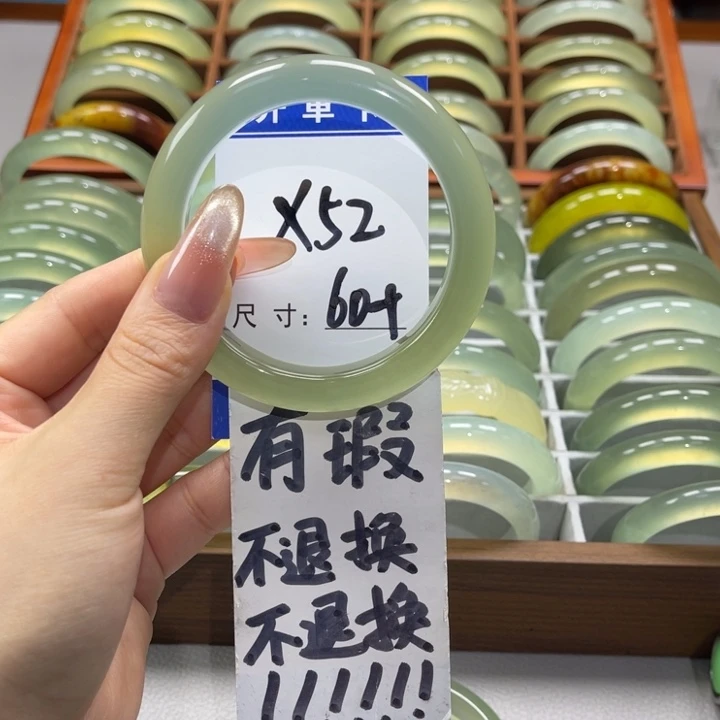 开单卡
X52
尺寸: 604
有瑕
不退换
不退换
!!!!!!